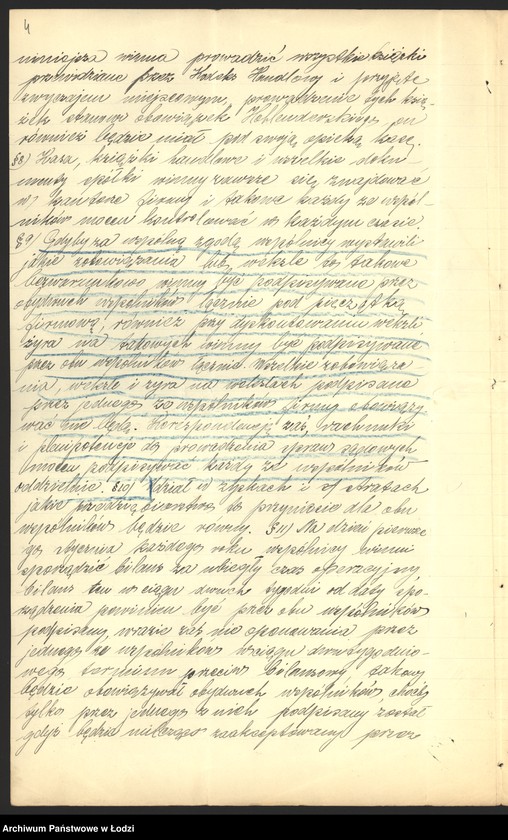 4
niniejsza winna prowadzić wszystkie książki
przewidziane przez Kodeks Handlowy i przyjęte
zwyczajem miejscowym, prowadzenie tych ksią-
żek stanowi obowiązek on
również będzie miał pod swoją opieką kasę.
§8) Kasa, książki handlowe i wszelkie doku-
menty spółki winny zawsze się znajdować
w kantorze firmy i takowe każdy ze wspól-
ników mocen kontrolować w każdym czasie
§9 Gdyby za wspólną zgodą wspólnicy wystawili
jakie zobowiązania lub weksle to takowe
bezwarunkowo winny być podpisywane przez
obydwuch wspólników łącznie pod pieczątką
firmową, również przy dyskontowaniu weksli
żyra na takowych winny być podpisywane
przez obu wspólników łącznie. Wszelkie zobowiąza
nia, weksle i żyra na wekslach podpisane
przez jednego ze wspólników firmy obowiązy
wać nie będą. Korespondencję zaś, rachunki
i plenipotencje do prowadzenia spraw sądowych
mocen podpisywać każdy ze wspólników
oddzielnie §10) Udział w zyskach i w stratach
jakie przedsiębiorstwo to przyniesie dla obu
wspólników będzie równy. §11) Na dzień pierwsze
go stycznia każdego roku wspólnicy winni
sporządzić bilans za ubiegły czas operacyjny
bilans ten w ciągu dwuch tygodni od daty spo-
rządzenia powinien być przez obu wspólników
podpisany, w razie zaś nie oponowania przez
jednego ze wspólników w ciągu dwutygodnio-
wego terminu przeciw bilansowi takowy
będzie obowiązywał obydwuch wspólników choćby
tylko przez jednego z nich podpisany został
gdyż będzie milcząco zaakceptowany przez
Archiwum Państwowe w Łodzi